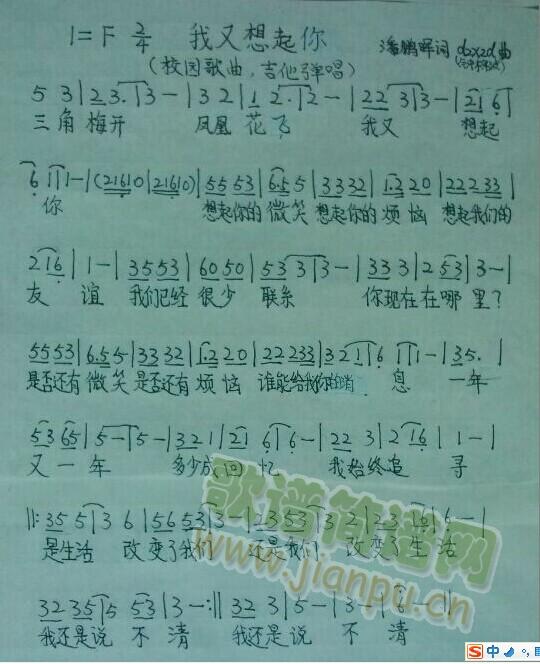 1=F 2/4 我又想起你
(校园歌曲,吉他弹唱) 潘鹏晖词 曲
5 3 | 2 3. | 3 - | 3 2 | 1 2. | 2 - | 2 2 3 | 3 - | 2 1 6 |
三角梅开 凤凰花飞 我又 想起
6 1 | 1 - | (2 1 6 1 0 | 2 1 6 1 0) | 5 5 5 3 | 6. 5 5 | 3 3 3 2 | 1. 2 2 0 | 2 2 2 3 3 |
你 想起你的微笑 想起你的烦恼 想起我们的
2 1 6 | 1 - | 3 5 5 3 | 6 0 5 0 | 5 3 3 | 3 - | 3 3 3 | 2 5 3 | 3 - |
友谊 我们已经很少联系 你现在在哪里?
5 5 5 3 | 6. 5 5 | 3 3 3 2 | 1. 2 2 0 | 2 2 2 3 3 | 3 2 1 | 6 1 | 1 - | 3 5. |
是否还有微笑 是否还有烦恼 谁能给我你的消息 一年
5 3 6 5 | 5 - | 5 - | 3 2 1 | 2 1 6 | 6 - | 2 2 3 | 2 1 6 | 1 - |
又一年 多少成回忆 我始终追寻
‖: 3 5 5 | 3 6 | 5 6 5 3 | 3 - | 2 3 5 3 | 3 2 | 2 3 1 6 | 6 - |
是生活 改变了我们 还是我们 改变了生活
3 2 3 5 | 5 5 3 | 3 - :‖ 3 2 3 | 5 - | 3 - | 6 - ‖
我还是说 不清 我还是说 不清
歌谱简谱网
www.jianpu.cn
中